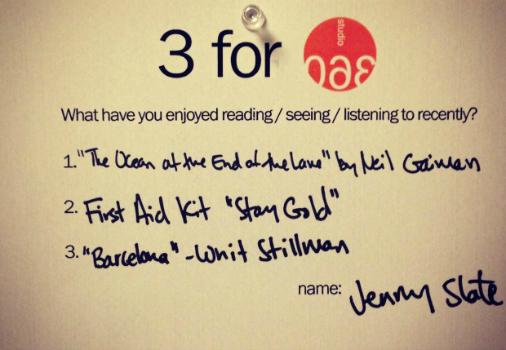 3 for studio 360
What have you enjoyed reading / seeing / listening to recently?
1. "The Ocean at the End of the Lane" by Neil Gaiman
2. First Aid Kit "Stay Gold"
3. "Barcelona" - Whit Stillman
name: Jenny Slate